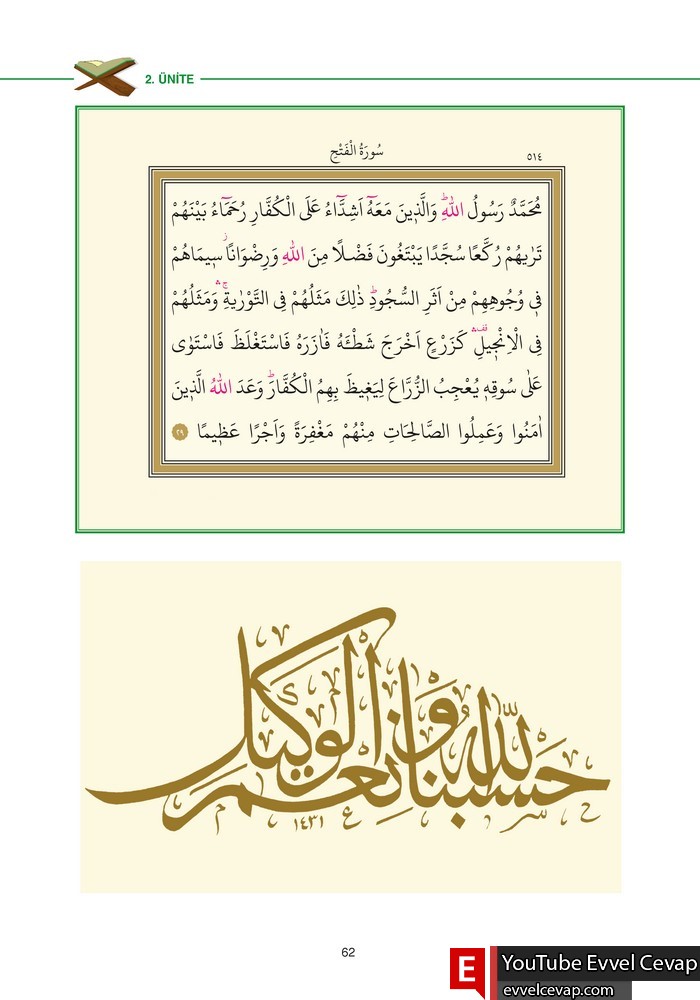 2. ÜNİTE
سُورَةُ الْفَتْحِ ٥١٤
مُحَمَّدٌ رَسُولُ اللّٰهِۜ وَالَّذ۪ينَ مَعَهُٓ اَشِدَّٓاءُ عَلَى الْكُفَّارِ رُحَمَٓاءُ بَيْنَهُمْ
تَرٰيهُمْ رُكَّعًا سُجَّدًا يَبْتَغُونَ فَضْلًا مِنَ اللّٰهِ وَرِضْوَانًاۘ س۪يمَاهُمْ
ف۪ي وُجُوهِهِمْ مِنْ اَثَرِ السُّجُودِۜ ذٰلِكَ مَثَلُهُمْ فِي التَّوْرٰيةِۚۛ وَمَثَلُهُمْ
فِي الْاِنْج۪يلِ۠ۛ كَزَرْعٍ اَخْرَجَ شَطْـَٔهُ فَاٰزَرَهُ فَاسْتَغْلَظَ فَاسْتَوٰى
عَلٰى سُوقِه۪ يُعْجِبُ الزُّرَّاعَ لِيَغ۪يظَ بِهِمُ الْكُفَّارَۜ وَعَدَ اللّٰهُ الَّذ۪ينَ
اٰمَنُوا وَعَمِلُوا الصَّالِحَاتِ مِنْهُمْ مَغْفِرَةً وَاَجْرًا عَظ۪يمًا ﴿٢٩﴾
حسبنا الله ونعم الوكيل
١٤٣١
62
E YouTube Evvel Cevap
evvelcevap.com